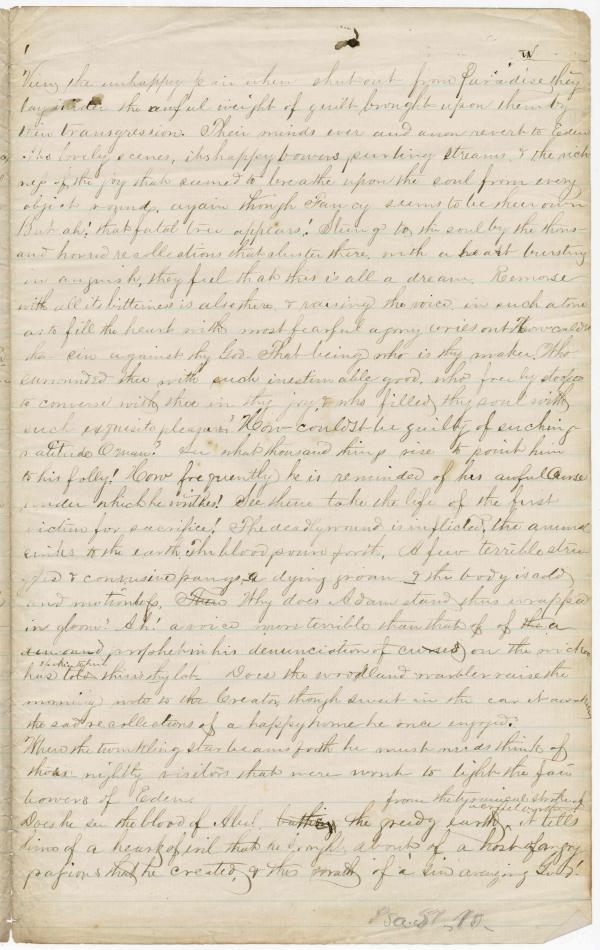 View the unhappy pair when shut out from Paradise, they
lay under the awful weight of guilt brought upon them by
their transgression. Their minds ever and anon revert to Eden
its lovely scenes, its happy bowers purling streams, & the rich
ness of the joy that seemed to breathe upon the soul from every
object round, again though Fancy seems to be their own
But ah! that fatal tree appears! Stung to the soul by the thorns
and horrid recollections that cluster there, with a heart bursting
in anguish, they feel that this is all a dream. Remorse
with all its bitterness is also there, & raising the voice in such a tone
as to fill the heart with most fearful agony cries out How couldst
thou sin against thy God. That being who is thy maker, Who
surrounded thee with such inestimable good, who
to converse with thee in thy joy, & who filled thy soul with
such exquisite pleasure! How couldst be guilty of such ing-
ratitude O man! See what thousand things rise to point him
to his folly! How frequently he is reminded of his awful Curse
under which he writhes! See there take the life of the first
victim for sacrifice! The deadly wound is inflicted, the animal
sinks to the earth, The blood pours forth, A few terrible strug
gles & convulsive pangs, a dying groan & the body is cold
and motionless, Why does Adam stand thus wrapped
in gloom? Ah! a voice more terrible than that of of a
prophet in his denunciation of curses on the wicked
has told this is thy lot. Does the woodland warbler raise the
morning note to the Creator, though sweet in the ear it awakens
the sad recollections of a happy home he once enjoyed.
When the twinkling star beams forth he must needs think of
those nightly visitors that were wont to light the fair
bowers of Eden.
from the tyranical stroke of
Does he see the blood of Abel, bathing the greedy earth, it tells
him of a heart of evil that he brought about of a host of angry
passions that he created, & the wrath of a sin avenging God!